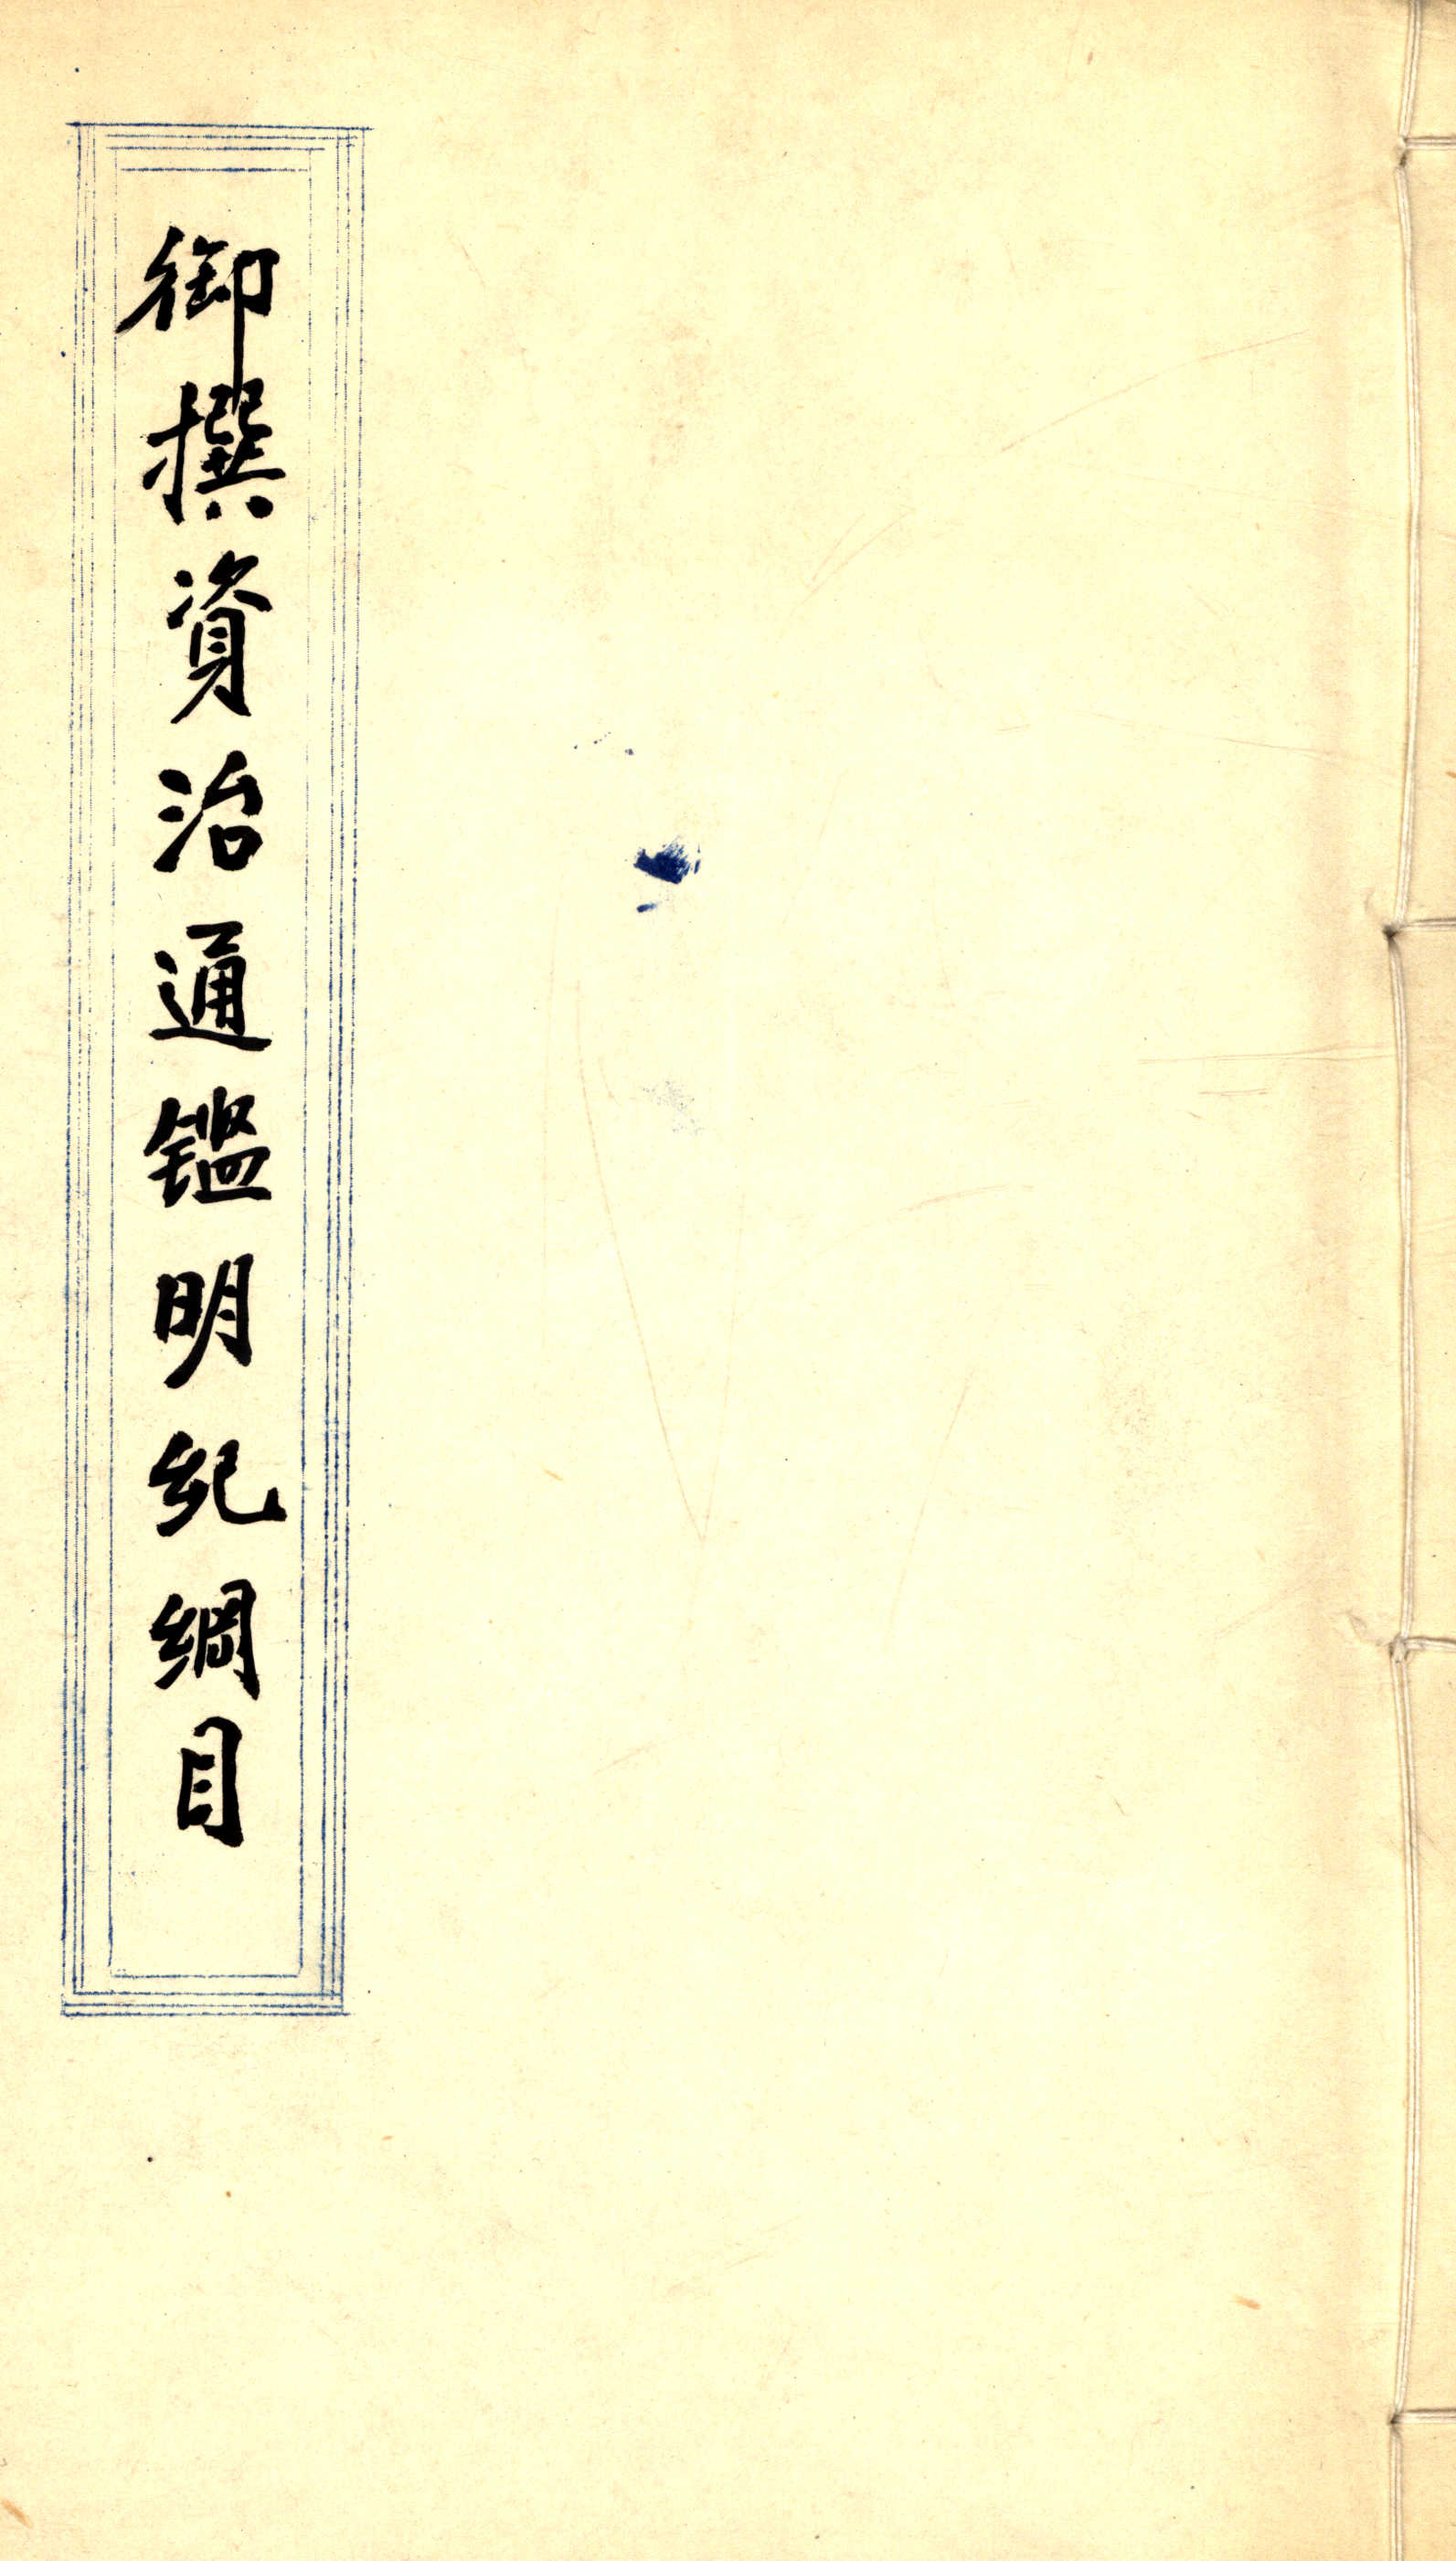 御撰資治通鑑明紀綱目